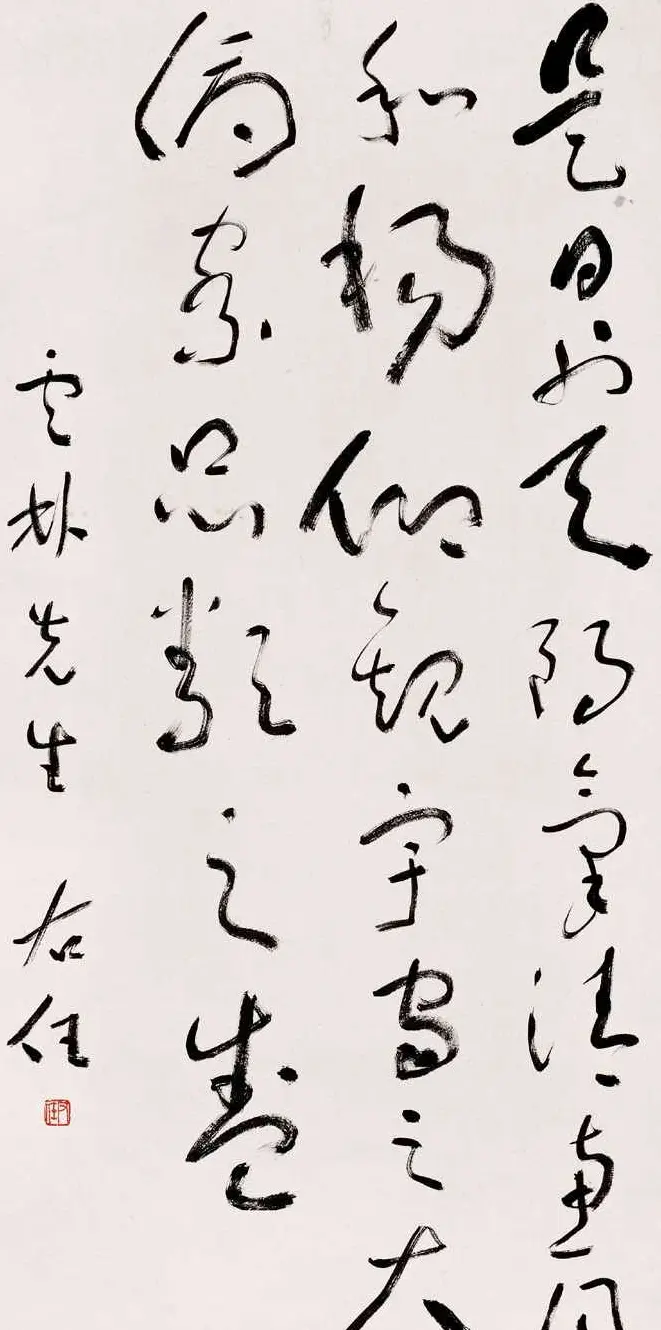 是日也天朗氣清惠風
和暢仰觀宇宙之大
俯察品類之盛
雲林先生 右任